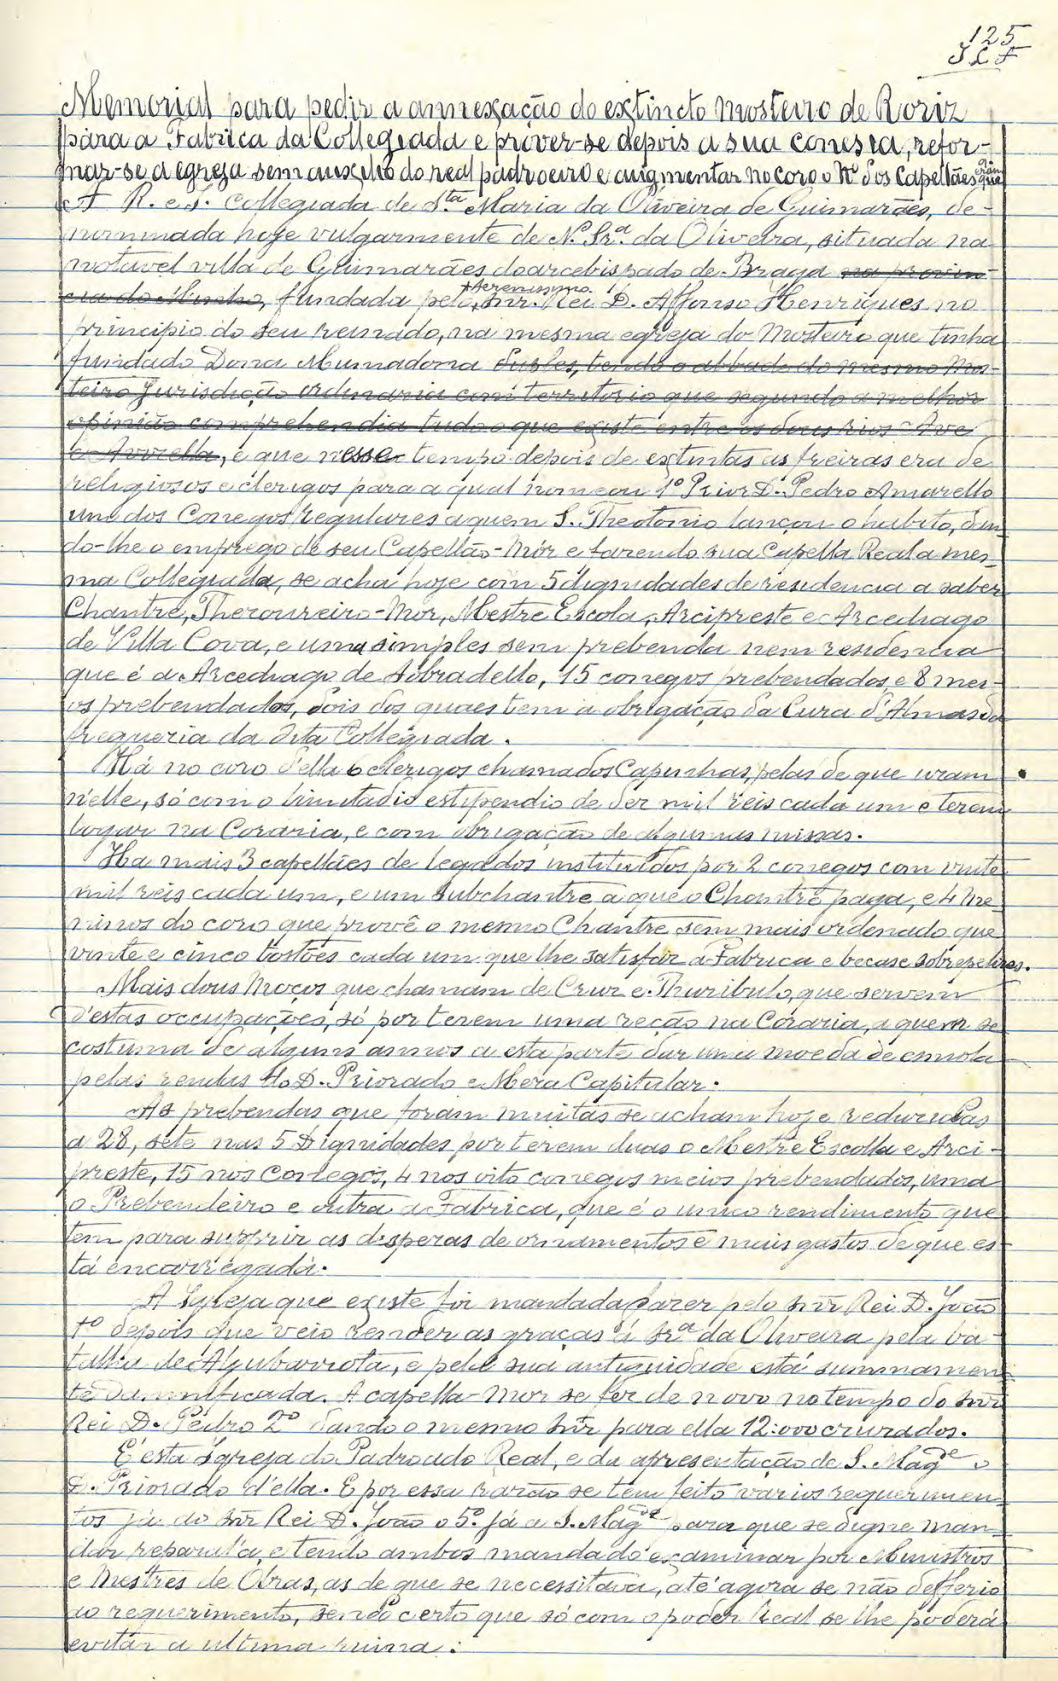 125
Memorial para pedir a annexação do extincto Mosteiro de Roriz
para a Fabrica da Collegiada e prover-se depois a sua conesia, refor-
mar-se a egreja sem auxilio do real padroeiro e augmentar no coro o Nº dos Capellães que
A R. e I. Collegiada de S.ta Maria da Oliveira de Guimarães, de-
nominada hoje vulgarmente de N.ª Sr.ª da Oliveira, situada na
notavel villa de Guimarães do arcebispado de Braga na provin-
cia do Minho, fundada pelo Serenissimo Snr. Rei D. Affonso Henriques no
principio do seu reinado, na mesma egreja do Mosteiro que tinha
fundado Dona Mumadona tendo o abbade do mesmo Mos-
teiro jurisdicção ordinaria com territorio que segundo a melhor
opinião comprehendia tudo o que existe entre os dous rios Ave
e Avizella, e que n'esse tempo depois de extintas as freiras era de
religiosos e clerigos para a qual nomeou 1º Prior D. Pedro Amarello
um dos Conegos regulares a quem S. Theotonio lançou o habito, dan-
do-lhe o emprego de seu Capellão-Mór e fazendo sua Capella Real a mes-
ma Collegiada, se acha hoje com 5 dignidades de residencia a saber
Chantre, Thezoureiro-Mor, Mestre Escola, Arcipreste e Arcediago
de Villa Cova, e uma simples sem prebenda nem residencia
que é a Arcediago de Sobradello, 15 conegos prebendados e 8 mei-
os prebendados, dois dos quaes tem a obrigação da Cura d'Almas da
freguezia da dita Collegiada.
Há no coro d'ella 6 clerigos chamados Capinhas, pelas de que uzam
n'elle, só com o limitado estipendio de dez mil reis cada um e terem
logar na Coraria, e com obrigação de algumas missas.
Ha mais 3 capellães de legados instituidos por 2 conegos com vinte
mil reis cada um, e um Subchantre a que o Chantre paga, e 4 Me-
ninos do coro que provê o mesmo Chantre sem mais ordenado que
vinte e cinco tostões cada um que lhe satisfaz a Fabrica e becas e sobrepelizes.
Mais dous Moços que chamam de Cruz e Thuribulo, que servem
d'estas occupações, só por terem uma reção na Coraria, a quem se
costuma de alguns annos a esta parte dar uma moeda de esmola
pelas rendas do D. Priorado e Meza Capitular.
As prebendas que foram muitas se acham hoje reduzidas
a 28, sete nas 5 Dignidades por terem duas o Mestre Escolla e Arci-
preste, 15 nos Conegos, 4 nos oito conegos meios prebendados, uma
o Prebendeiro e outra a Fabrica, que é o unico rendimento que
tem para supprir as despezas de ornamentos e mais gastos de que es-
tá encarregada.
A Igreja que existe foi mandada fazer pelo Snr Rei D. João
1º depois que veio render as graças á Sr.ª da Oliveira pela ba-
talha de Aljubarrota, e pela sua antiguidade está summamen-
te damnificada. A capella-Mor se fez de novo no tempo do Snr
Rei D. Pedro 2º dando o mesmo Snr para ella 12:000 cruzados.
É esta Igreja do Padroado Real, e da apresentação de S. Mag.de o
D. Priorado d'ella. E por essa razão se tem feito varios requerimen-
tos já ao Snr Rei D. João o 5º já a S. Mag.de para que se digne man-
dar reparal'a, e tendo ambos mandado examinar por Ministros
e Mestres de Obras, as de que se necessitava, até agora se não defferio
ao requerimento, sendo certo que só com o poder Real se lhe poderá
evitar a ultima ruina.